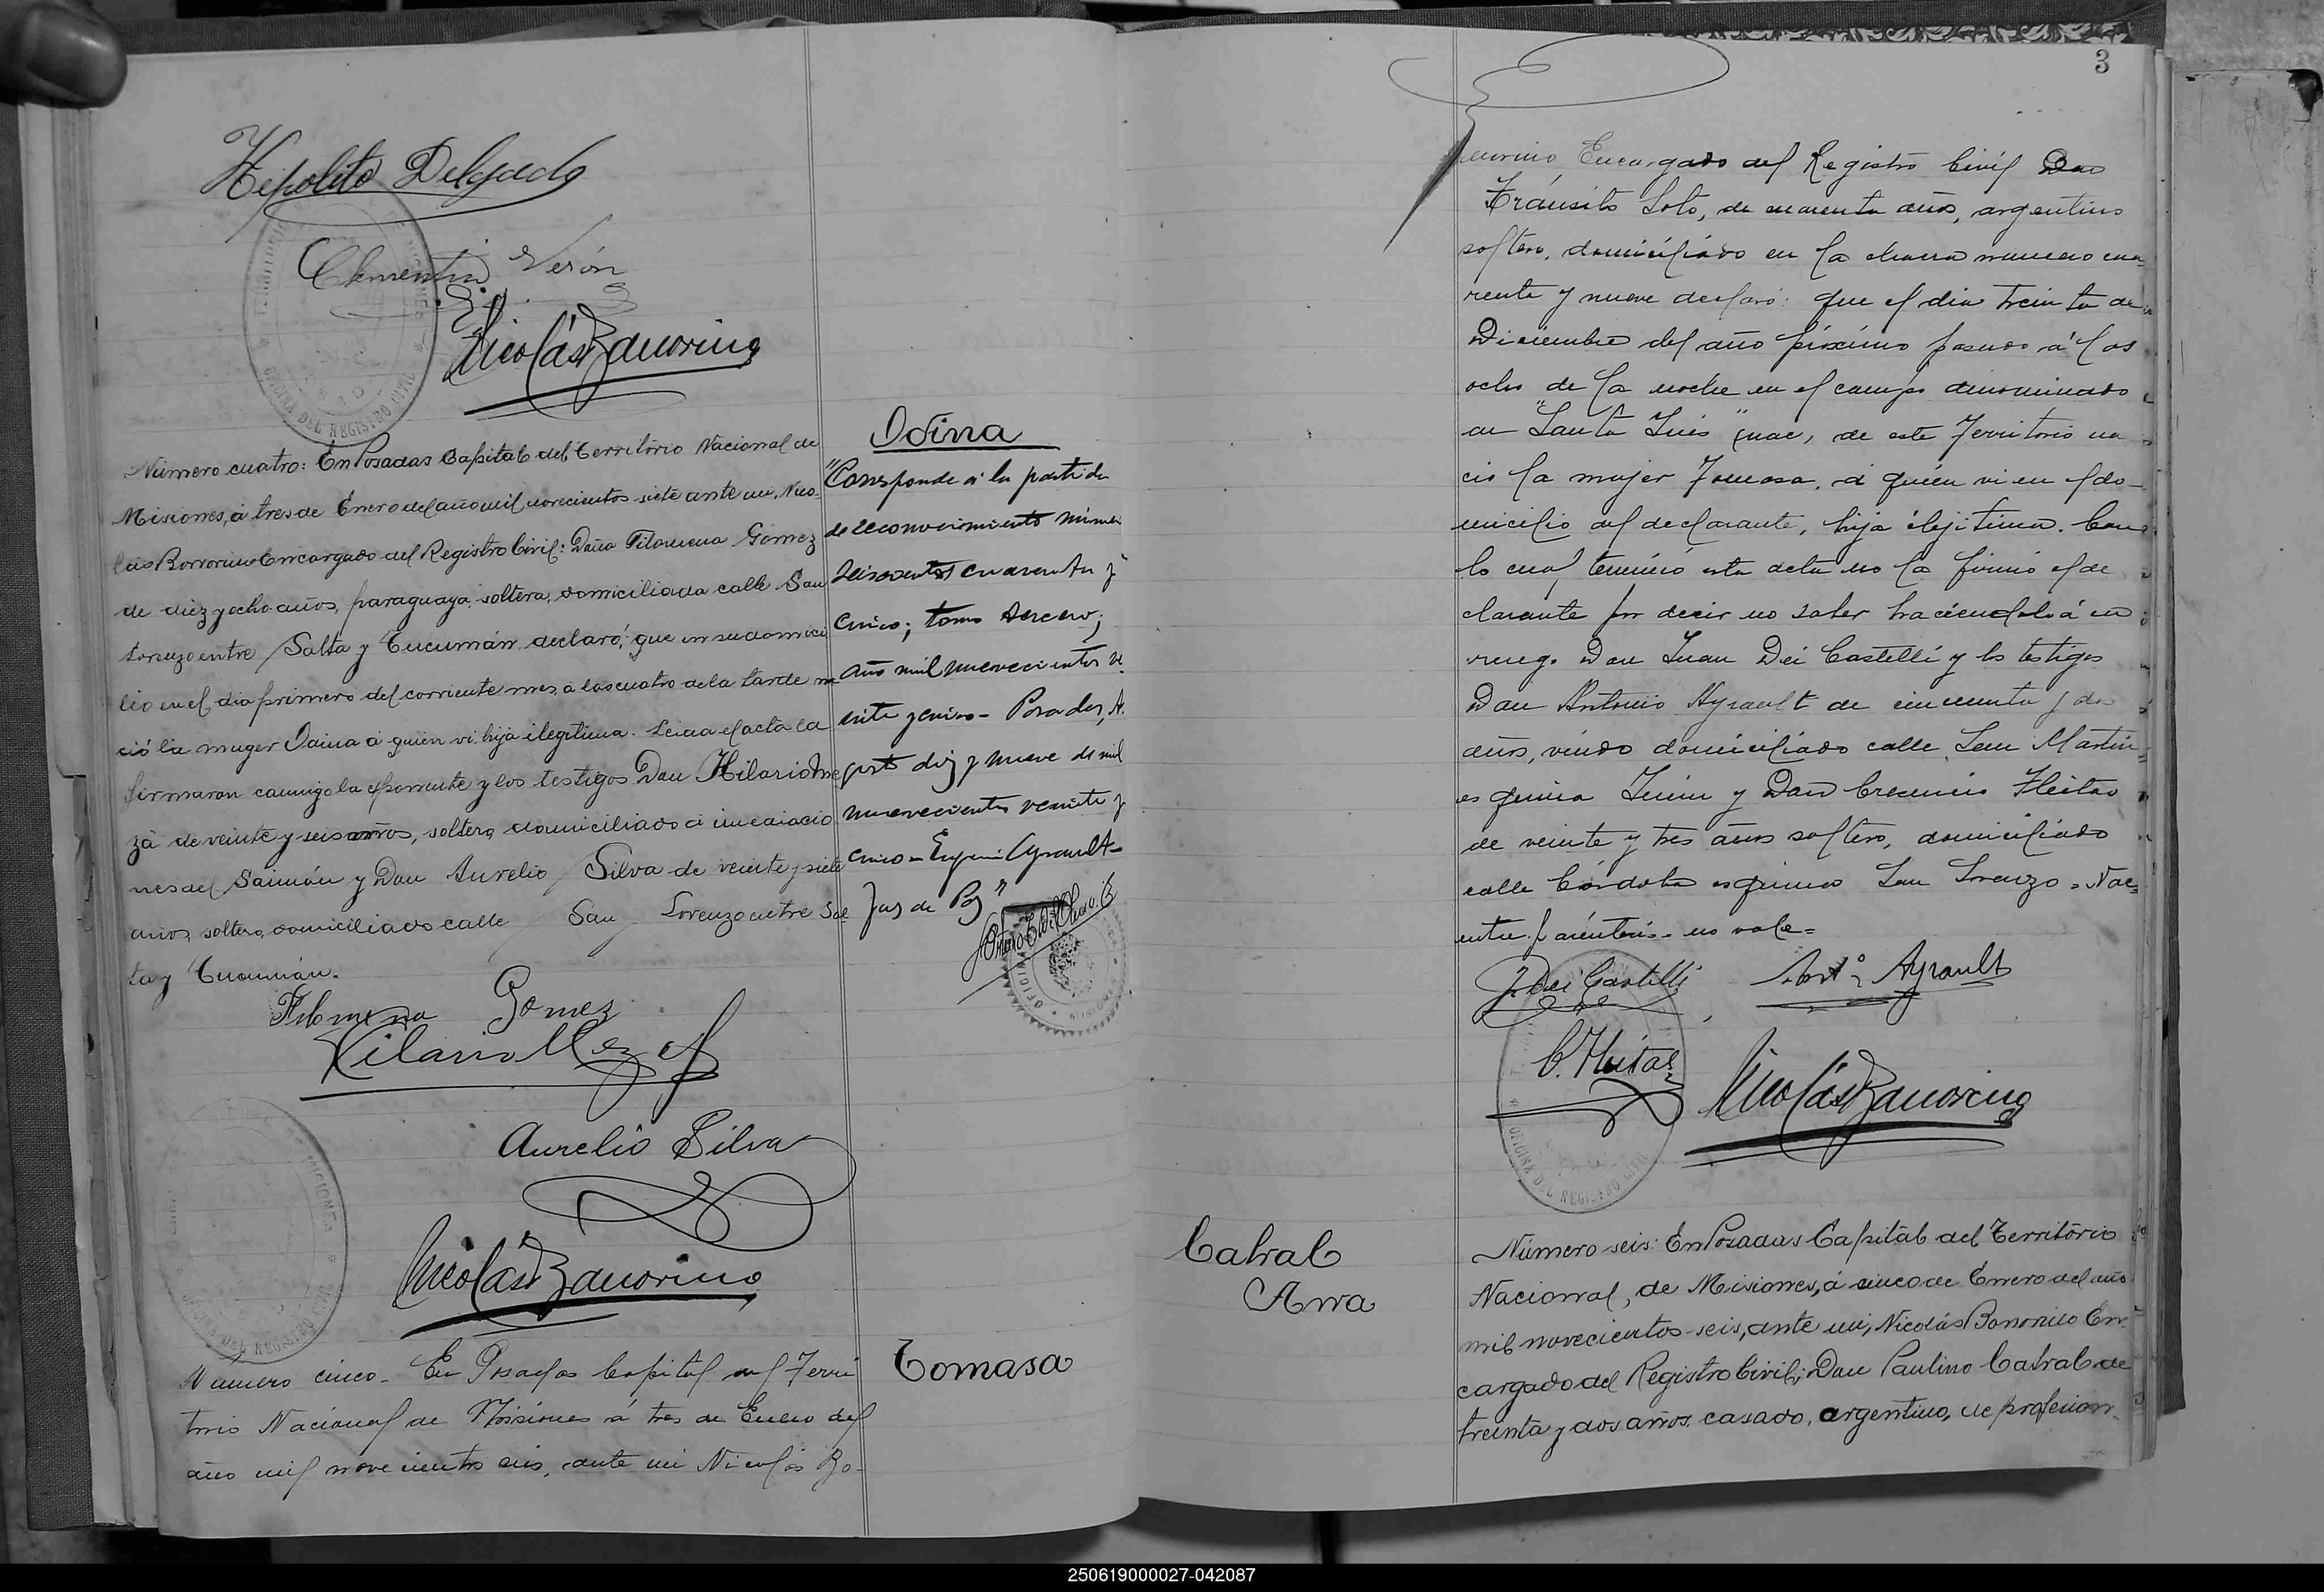 Hipolito Delgado
Clementin Verón
Nicolás Bonorino
Número cuatro: En Posadas Capital del Territorio Nacional de
Misiones, á tres de Enero del año mil novecientos siete ante mi, Nico-
lás Bonorino Encargado del Registro Civil: Doña Filomena Gómez
de diez y ocho años, paraguaya, soltera, domiciliada calle San
Lorenzo entre Salta y Tucumán, declaró: que en su domici
lio en el dia primero del corriente mes, á las cuatro de la tarde na
ció la muger Odina á quien vi. hija ilegitima. Leida el acta la
firmaron conmigo la esponente y los testigos Don Hilario Me
za de veinte y seis años, soltero, domiciliado á inmediacio
nes del Saimán y Don Aurelio Silva de veinte y siete
años, soltero, domiciliado calle San Lorenzo entre Sal
ta y Tucumán.
Filomena Gomez
Hilario Meza
Aurelio Silva
Nicolás Bonorino
Número cinco. En Posadas Capital del Terri
torio Nacional de Misiones á tres de Enero del
año mil novecientos seis, ante mi Nicolás Bo-
Odina
"Corresponde á la partida
de reconocimiento número
seiscientos cuarenta y
cinco; tomo tercero;
año mil novecientos ve
inte y cinco - Posadas, A.
gosto diez y nueve de mil
novecientos veinte y
cinco - Ayrault -
Juez de Paz"
OFICINA
Tomasa
TERRITORIO
MISIONES
OFICINA DEL REGISTRO CIVIL
3
norino, Encargado del Registro Civil Don
Tránsito Soto, de cuarenta años, argentino
soltero, domiciliado en la chacra número cua
renta y nueve declaró: que el dia treinta de
Diciembre del año próximo pasado á las
ocho de la noche en el campo denominado
de "Santa Inés" (nac), de este Territorio na
ció la mujer Tomasa, á quién vi en el do-
micilio del declarante, hija ilejitima. Con
lo cual terminó esta acta no la firmó el de
clarante por decir no saber haciendolo á su
ruego Don Juan Dei Castelli y los testigos
Don Antonio Ayrault de cincuenta y dos
años, viudo domiciliado calle San Martin
esquina Junin y Don Crecencio Fleitas
de veinte y tres años soltero, domiciliado
calle Córdoba esquina San Lorenzo = Nac
entre paréntesis - no vale =
J. Dei Castelli Antº Ayrault
C. Fleitas
Nicolás Bonorino
OFICINA DEL REGISTRO CIVIL
Cabral
Ana
Número seis: En Posadas Capital del Territorio
Nacional, de Misiones, á cinco de Enero del año
mil novecientos seis, ante mi, Nicolás Bonorino En
cargado del Registro Civil; Don Paulino Cabral de
treinta y dos años, casado, argentino, de profesion
250619000027-042087